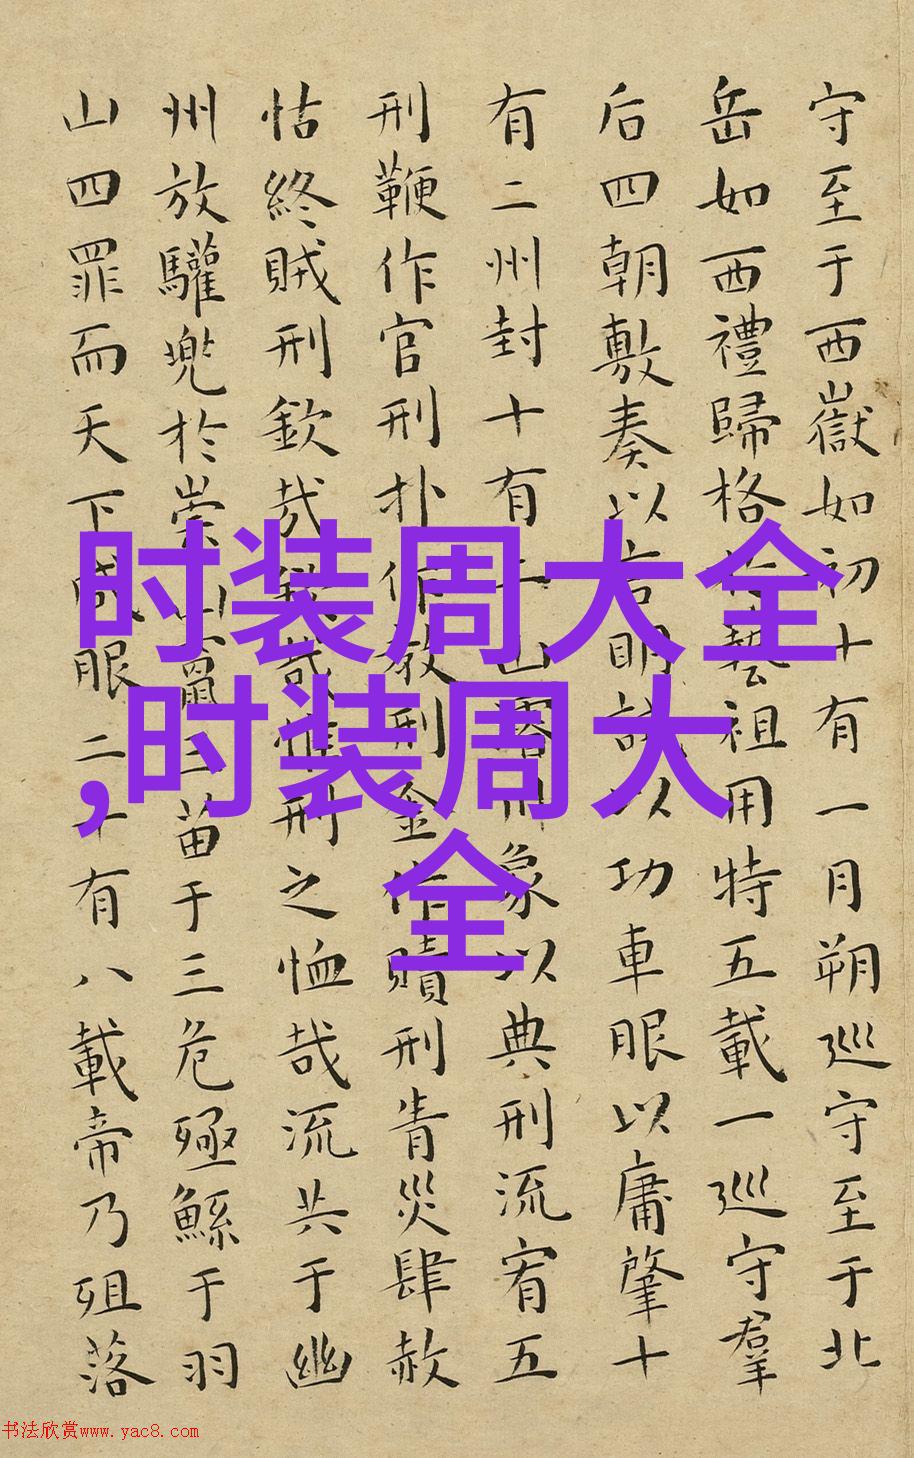 守至于西嶽如初十有一月朔巡守至于北
岳如西禮歸格於藝祖用特五載一巡守羣
后四朝敷奏以言明試以功車服以庸肇十
有二州封十有二山濬川象以典刑流宥五
刑鞭作官刑扑作教刑金作贖刑眚災肆赦
怙終賊刑欽哉欽哉惟刑之恤哉流共于幽
州放驩兜於崇山竄三苗于三危殛鯀于羽
山四罪而天下咸服二十有八載帝乃殂落
时装周大全
,时装周大
全
书法欣赏www.yac8.com